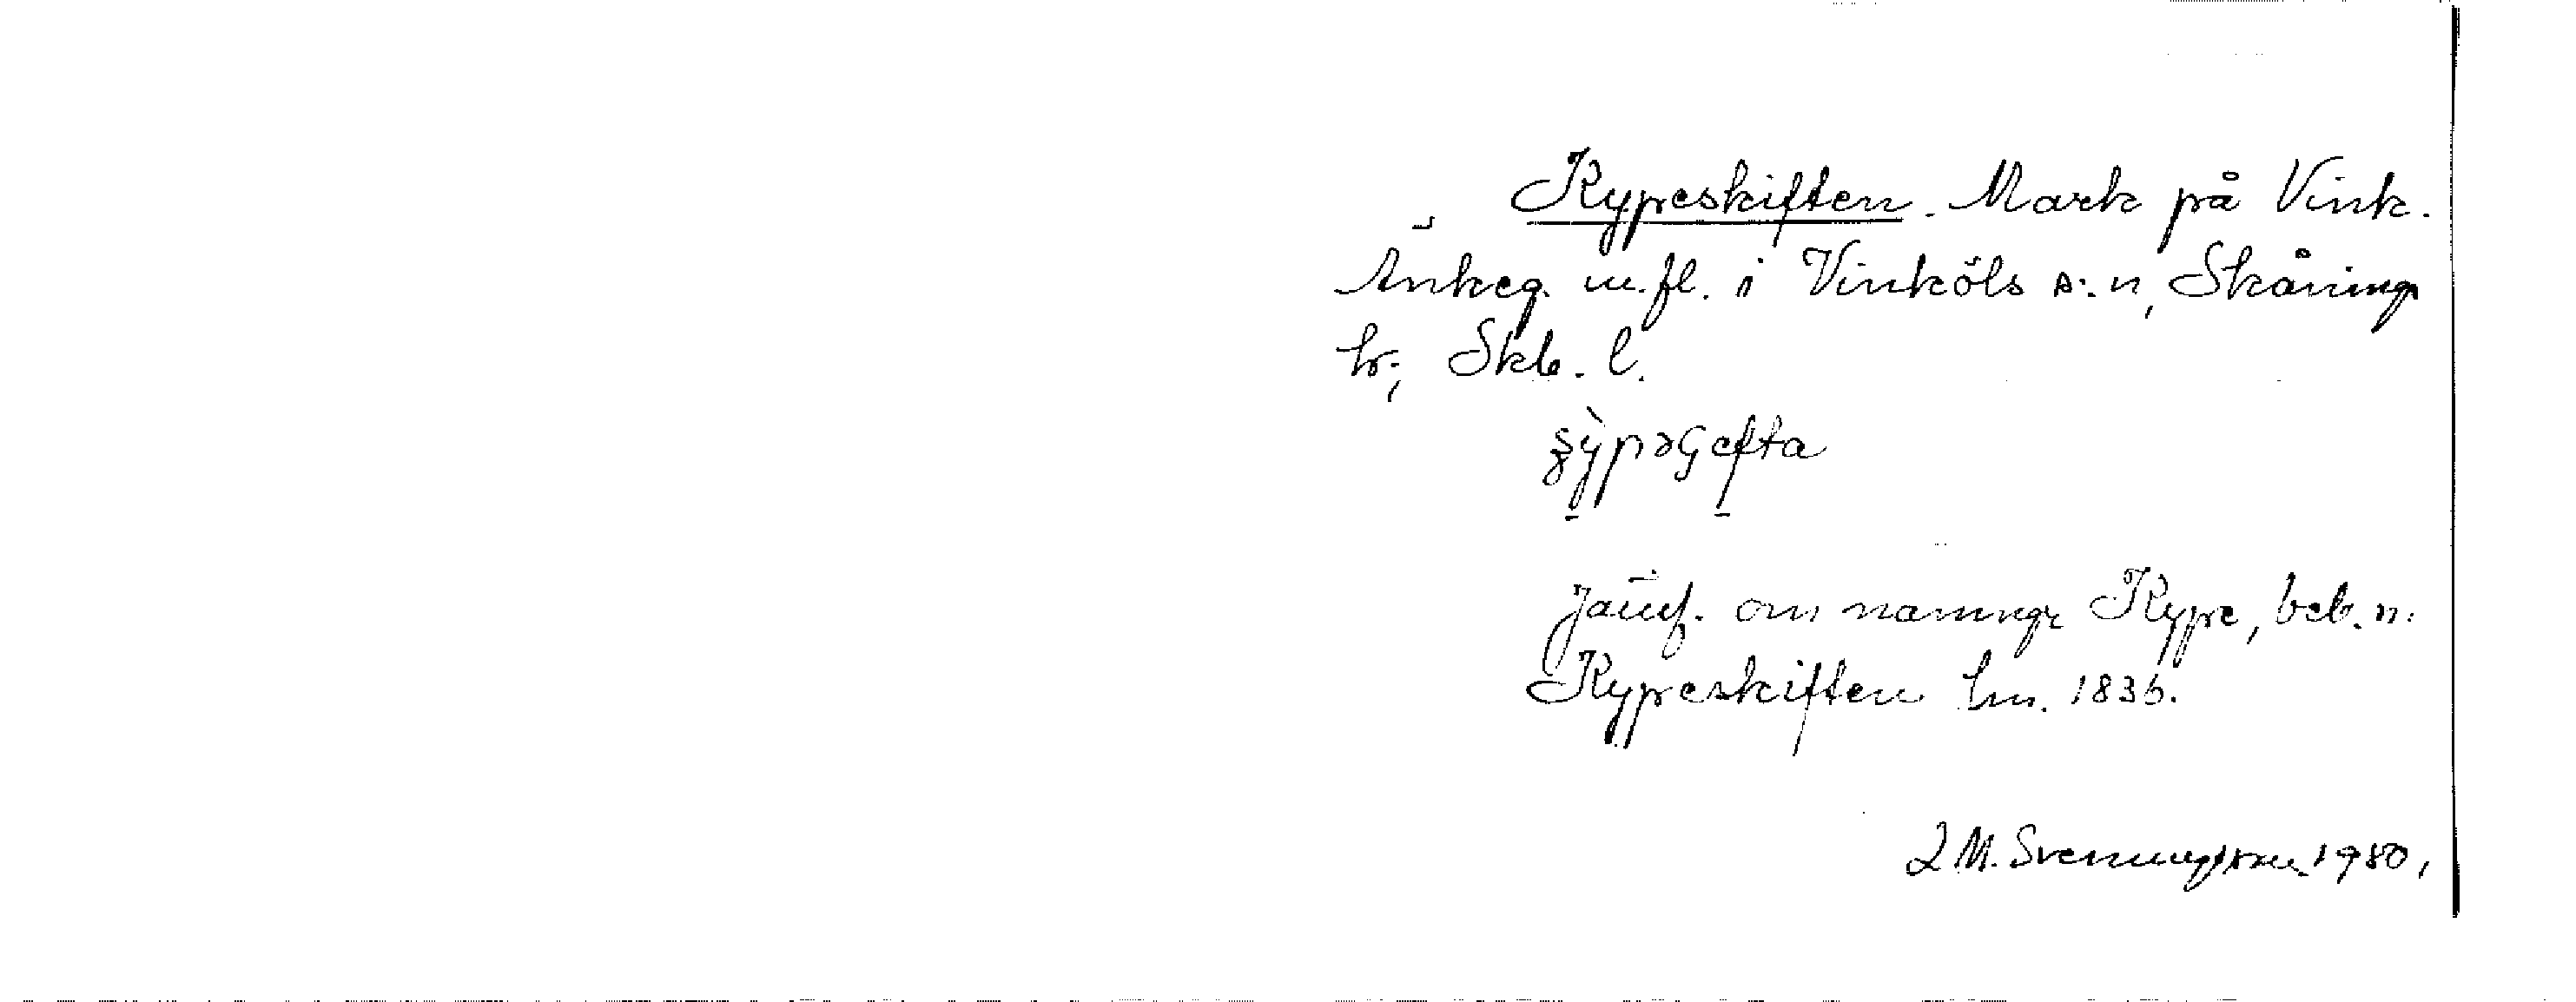 Kypeskiften. Mark på Vink.
Änkeg. m.fl. i Vinköls s:n, Skånings
hr; Skb. l.
Jämf. om namnge Kype, beb.n.
Kypeskiften hm. 1836.
M. Svenungsson 1980,